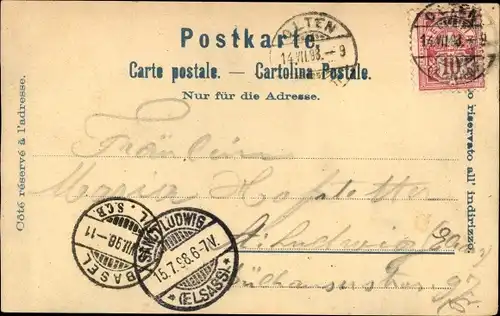 Postkarte
Carte postale. — Cartolina Postale.
Nur für die Adresse.
Côté réservé à l'adresse.
riservato all' indirizzo
OLTEN
14.VII.98.–9
OLTEN
14.VII.98.–9
10
Fräulein
Maria Hofstetter
St. Ludwig
BASEL
VII.98.–11
L.S.C.B.
SANKT LUDWIG
15.7.98.6-7V.
*(ELSASS)*
97